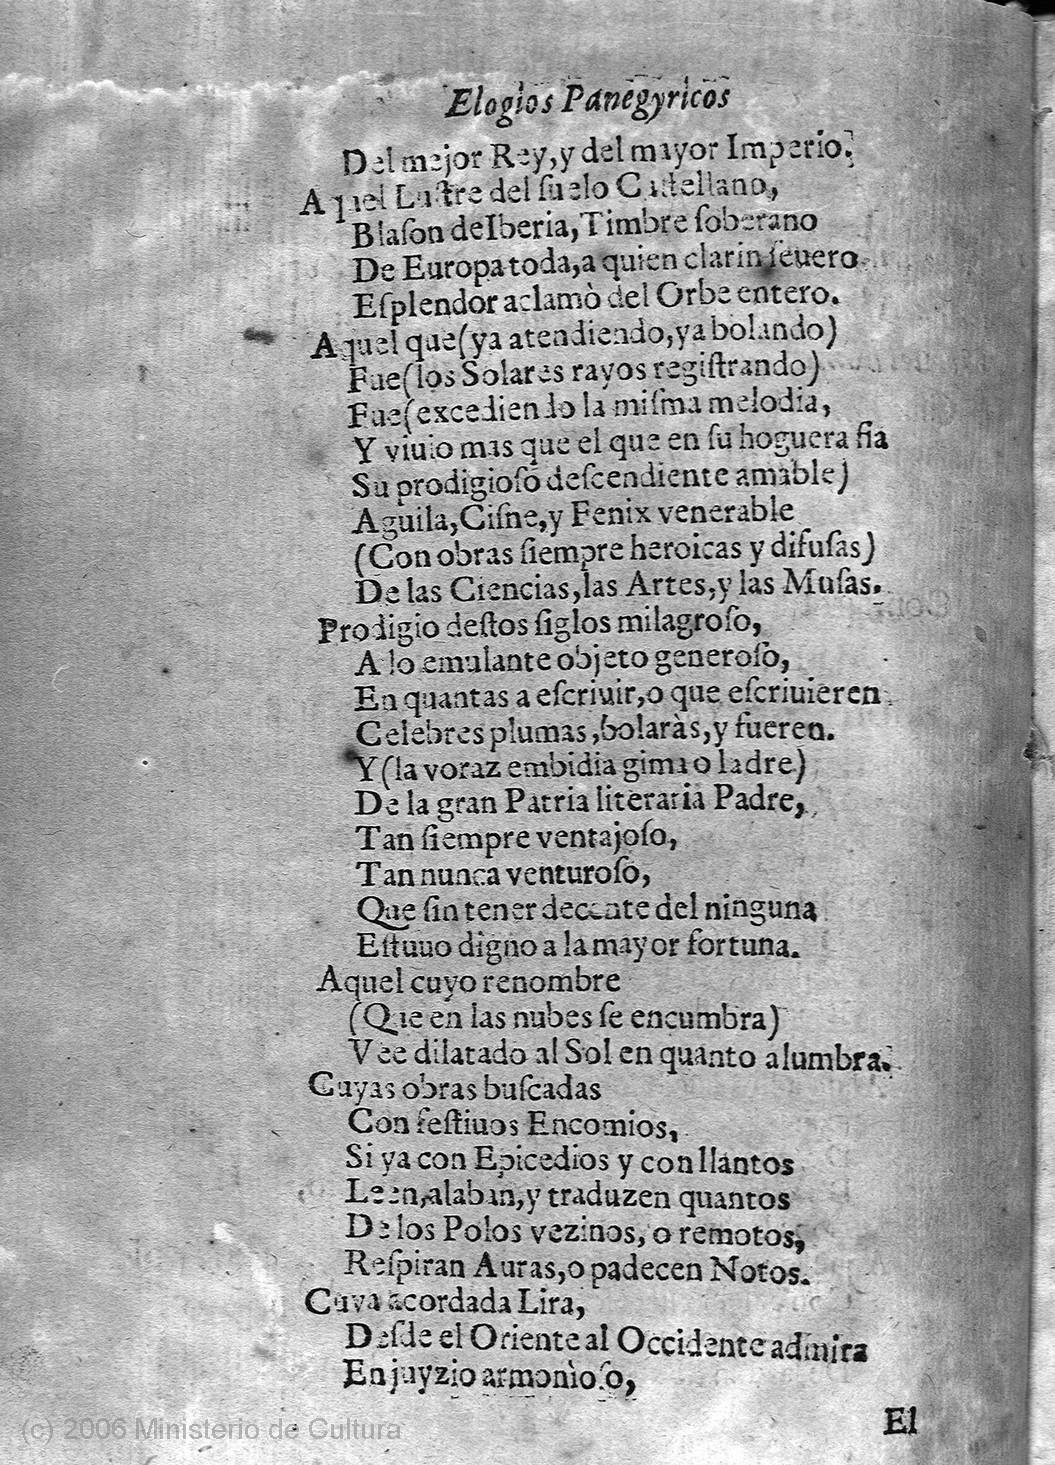 Elogios Panegyricos
Del mejor Rey, y del mayor Imperio.
Aquel Lustre del ſuelo Castellano,
Blaſon de Iberia, Timbre ſoberano
De Europa toda, a quien clarin ſeuero
Eſplendor aclamò del Orbe entero.
Aquel que (ya atendiendo, ya bolando)
Fue (los Solares rayos regiſtrando)
Fue (excediendo la miſma melodia,
Y viuio mas que el que en ſu hoguera fia
Su prodigioſo deſcendiente amable)
Aguila, Ciſne, y Fenix venerable
(Con obras ſiempre heroicas y difuſas)
De las Ciencias, las Artes, y las Muſas.
Prodigio deſtos ſiglos milagroſo,
A lo emulante objeto generoſo,
En quantas a eſcriuir, o que eſcriuieren
Celebres plumas, bolaràs, y fueren.
Y (la voraz embidia gima o ladre)
De la gran Patria literaria Padre,
Tan ſiempre ventajoſo,
Tan nunca venturoſo,
Que ſin tener del ninguna
Eſtuuo digno a la mayor fortuna.
Aquel cuyo renombre
(Que en las nubes ſe encumbra)
Vee dilatado al Sol en quanto alumbra.
Cuyas obras buſcadas
Con feſtiuos Encomios,
Si ya con Epicedios y con llantos
Leen, alaban, y traduzen quantos
De los Polos vezinos, o remotos,
Reſpiran Auras, o padecen Notos.
Cuya acordada Lira,
Deſde el Oriente al Occidente admira
En juyzio armonioſo,
El
(c) 2006 Ministerio de Cultura